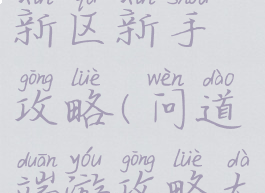 xīn qū xīn shǒu
新区新手
gōng lüè wèn dào
攻略(问道
duān yóu gōng lüè dà
端游攻略大